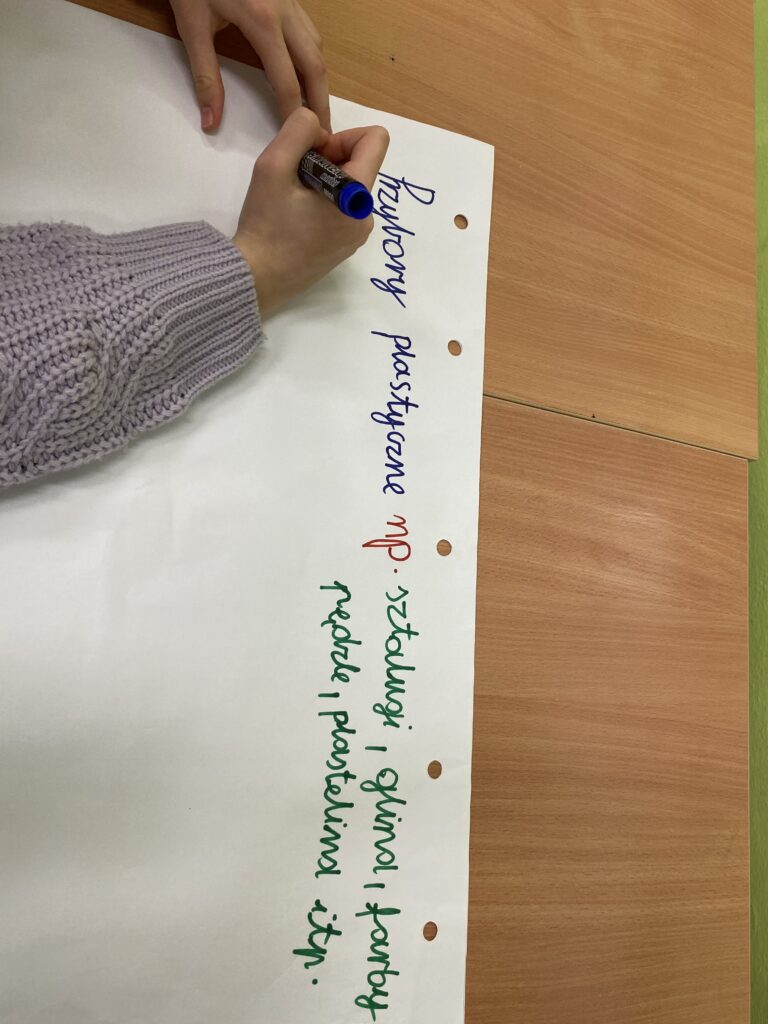 Przybory plastyczne np. sztalugi, glina, farby
pędzle, plastelina itp.